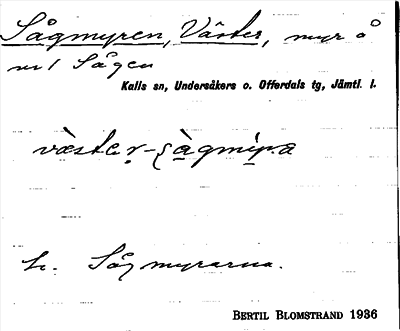 Sågmyren, Väster, myr å
nr 1 Sågen
Kalls sn, Undersåkers o. Offerdals tg, Jämtl. l.
väster-sàgmi̠ra
h. Sågmyrarna.
BERTIL BLOMSTRAND 1936